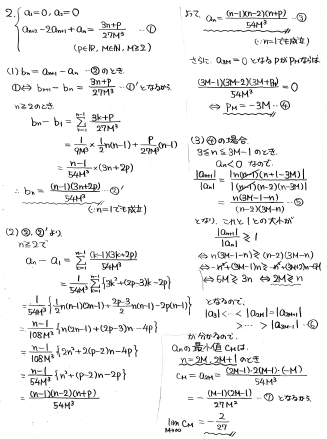 2. { a₁=0, a₂=0
aₙ₊₂-2aₙ₊₁+aₙ = (3n+p)/(27M³) …①
(p∈R, M∈N, M≥2)
(1) bₙ = aₙ₊₁-aₙ …②のとき
①⇔ bₙ₊₁-bₙ = (3n+p)/(27M³) …①'となるから
n≥2のとき
bₙ-b₁ = Σ[k=1, n-1] (3k+p)/(27M³)
= 1/(9M³)・(1/2)n(n-1) + p/(27M³)(n-1)
= (n-1)/(54M³)×(3n+2p)
∴ bₙ = (n-1)(3n+2p)/(54M³) …②'
(∵n=1でも成立)
(2) ②,②'より
n≥2で
aₙ-a₁ = Σ[k=1, n-1] (k-1)(3k+2p)/(54M³)
= 1/(54M³) Σ[k=1, n-1] {3k²+(2p-3)k-2p}
= 1/(54M³) {(1/2)n(n-1)(2n-1)+((2p-3)/2)n(n-1)-2p(n-1)}
= (n-1)/(108M³) {n(2n-1)+(2p-3)n-4p}
= (n-1)/(108M³) {2n²+2(p-2)n-4p}
= (n-1)/(54M³) {n²+(p-2)n-2p}
= (n-1)(n-2)(n+p)/(54M³)
よって, aₙ = (n-1)(n-2)(n+p)/(54M³) …③
(∵n=1でも成立)
さらに, a₃M=0となるpがpMならば
(3M-1)(3M-2)(3M+pM)/(54M³) = 0
⇔ pM = -3M …④
(3) ④の場合
3≤n≤3M-1のとき
aₙ<0 なので
|aₙ₊₁|/|aₙ| = |n(n-1)(n+1-3M)|/|(n-1)(n-2)(n-3M)|
= n(3M-n-1)/((n-2)(3M-n)) …⑤
となり, これと1との大小が
|aₙ₊₁|/|aₙ| ≷ 1
⇔ n(3M-n-1) ≷ (n-2)(3M-n)
⇔ 6M ≷ 3n ⇔ 2M ≷ n
となるので,
|a₃|<…<|a₂M|=|a₂M₊₁|
>…>|a₃M₋₁| …⑥
が分かるので
aₙの最小値CMは,
n=2M, 2M+1のとき
CM = a₂M = (2M-1)・2(M-1)・(-M)/(54M³)
= -(M-1)(2M-1)/(27M²) …⑦となるから,
lim[M→∞] CM = -2/27